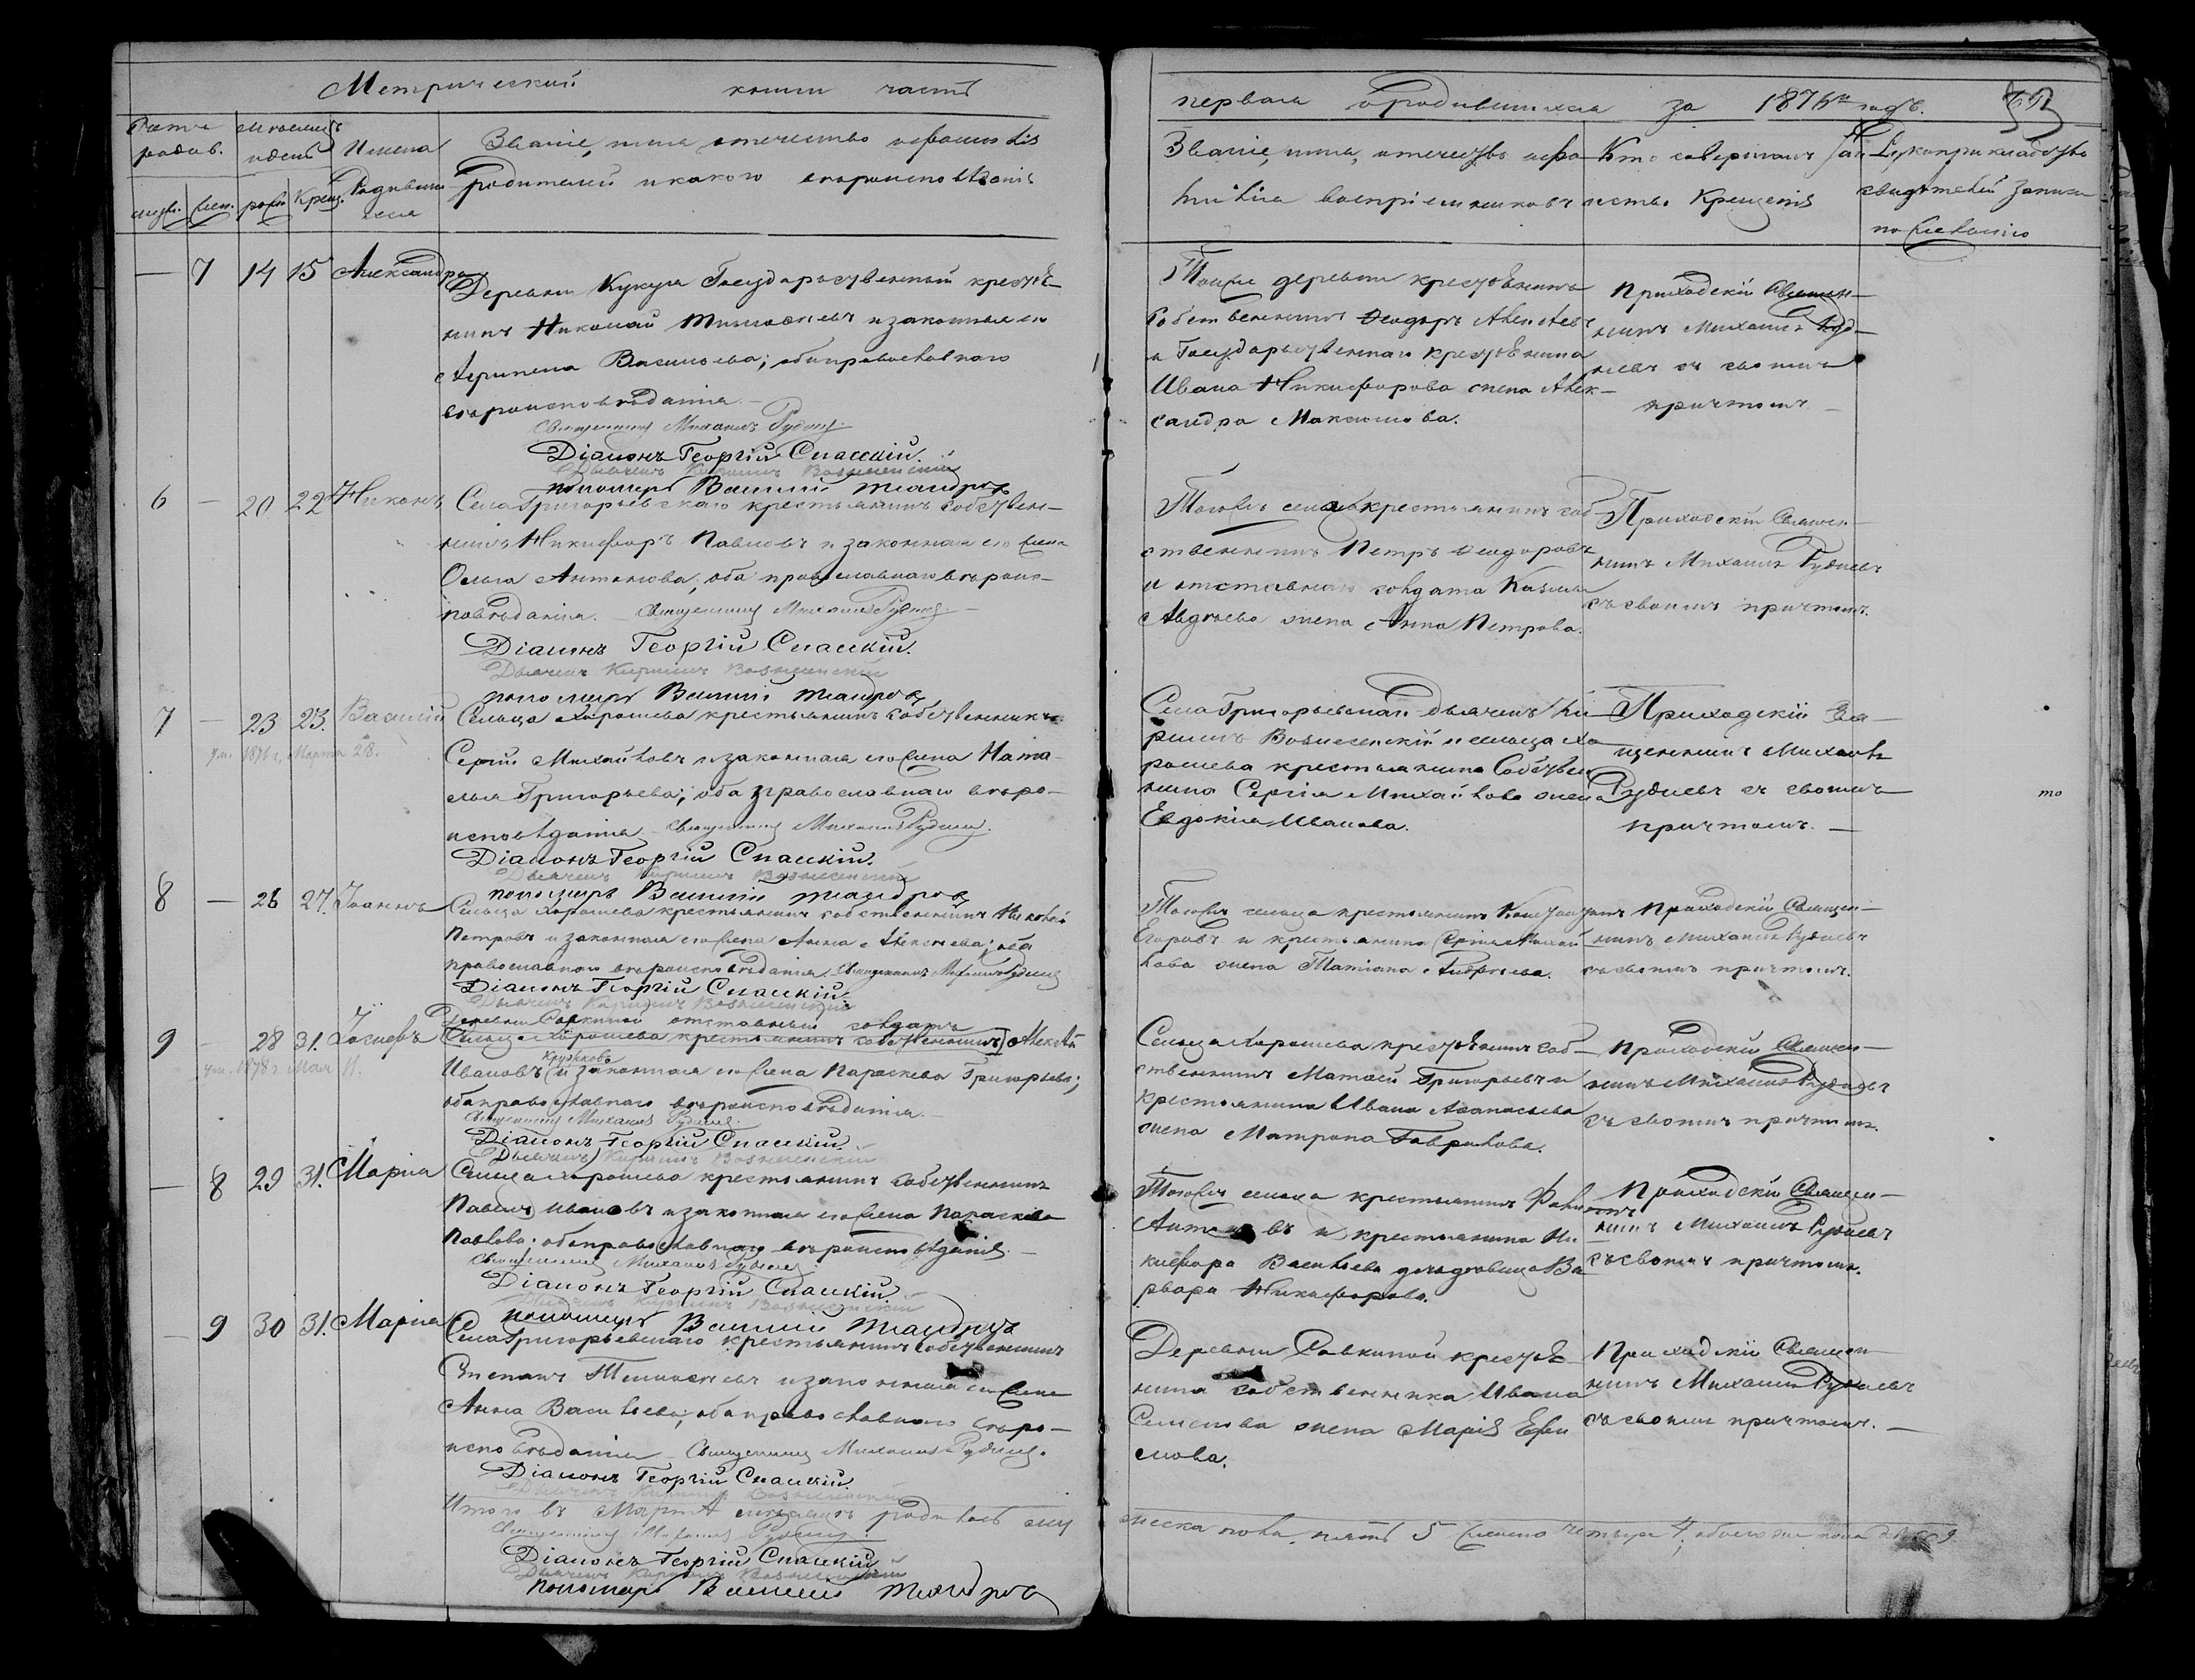 Метрической книги часть
первая о родившихся за 1876й годъ. 53
Счетъ родив. Месяцъ и день Имена Родившихся Званіе, имя отечество и фамилія
родителей и какого вероисповѣданія
мужс. жен. рожд. Крещ.
Званіе, имя, отечество и фамилія воспріемниковъ
Кто совершалъ таинство Крещенія
Рукоприкладство
свидѣтелей записи
по желанію
— 7 14 15 Александра
Деревни Кукуя Государственный крестья-
нинъ Николай Тимоѳеевъ и законная его
Агрипена Васильева; оба православнаго
вѣроисповѣданія. —
Священникъ Михаилъ Рудневъ.
Діаконъ Георгій Спасскій.
Дьячекъ Кириллъ Вознесенскій
пономарь Василій
Тойже деревни крестьянинъ
собственникъ Ѳеодоръ Алексѣевъ
и Государственнаго крестьянина
Ивана Никифорова жена Алек-
сандра Максимова.
Приходскій Священ-
никъ Михаилъ Руд-
невъ съ своимъ
причтомъ. —
6 — 20 22 Никонъ
Села Григорьевскаго крестьянинъ собствен-
никъ Никифоръ Павловъ и законная его жена
Ольга Антонова; оба православнаго вѣроис-
повѣданія. — Священникъ Михаилъ Рудневъ. —
Діаконъ Георгій Спасскій.
Дьячекъ Кириллъ Вознесенскій
пономарь Василій
Тоговъ села крестьянинъ соб-
ственникъ Петръ Ѳеодоровъ
и отставнаго солдата Козьмы
Авдѣева жена Анна Петрова.
Приходскій Священ-
никъ Михаилъ Рудневъ
съ своимъ причтомъ.
7 — 23 23. Василій
ум. 1876 г. Марта 28.
Сельца Хорошева крестьянинъ собственникъ
Сергій Михайловъ и законная его жена Ната-
лья Григорьева; оба православнаго вѣро-
исповѣданія — Священникъ Михаилъ Рудневъ.
Діаконъ Георгій Спасскій.
Дьячекъ Кириллъ Вознесенскій
пономарь Василій
Села Григорьевскаго дьячекъ Ки-
риллъ Вознесенскій и сельца Хо
рошева крестьянина Собствен
ника Сергія Михайлова жена
Евдокія Иванова.
Приходскій Свя-
щенникъ Михаилъ
Рудневъ съ своимъ
причтомъ. —
то
8 — 26 27. Іоаннъ
Сельца Хорошева крестьянинъ собственникъ Николай
Петровъ и законная его жена Анна Алексѣева; оба
православнаго вѣроисповѣданія. Священникъ Михаилъ Рудневъ
Діаконъ Георгій Спасскій.
Дьячекъ Кириллъ Вознесенскій
Тоговъ сельца крестьянинъ Константинъ
Егоровъ и крестьянина Сергія Михай
лова жена Татіана Андреева.
Приходскій Священ-
никъ Михаилъ Рудневъ
съ своимъ причтомъ.
9 — 28 31. Іосифъ
ум. 1878 г. Мая 11.
Деревни Савкиной отставный солдатъ
Сельца Хорошева крестьянинъ собственникъ Алексѣй
Круглковъ
Ивановъ и законная его жена Параскева Григорьева;
оба православнаго вѣроисповѣданія. —
Священникъ Михаилъ Рудневъ.
Діаконъ Георгій Спасскій.
Дьячекъ Кириллъ Вознесенскій
Сельца Хорошева крестьянинъ соб-
ственникъ Матѳей Григорьевъ и
крестьянина Ивана Аѳанасьева
жена Матрона Гаврилова.
Приходскій Священ-
никъ Михаилъ Рудневъ
съ своимъ причтомъ.
— 8 29 31. Марія
Сельца Хорошева крестьянинъ собственникъ
Павелъ Ивановъ и законная его жена Параскева
Павлова; оба православнаго вѣроисповѣданія. —
Священникъ Михаилъ Рудневъ.
Діаконъ Георгій Спасскій.
Дьячекъ Кириллъ Вознесенскій
пономарь Василій
Тоговъ сельца крестьянинъ
Антоновъ и крестьянина Ни
кифора Васильева дочь девица Ва
рвара Никифорова.
Приходскій Священ-
никъ Михаилъ Рудневъ
съ своимъ причтомъ.
— 9 30 31. Марія
Села Григорьевскаго крестьянинъ собственникъ
Степанъ Тимоѳеевъ и законная его жена
Анна Васильева; оба православнаго вѣро-
исповѣданія — Священникъ Михаилъ Рудневъ.
Діаконъ Георгій Спасскій.
Дьячекъ Кириллъ Вознесенскій
Деревни Савкиной крестья-
нина собственника Ивана
Семенова жена Марія Ефи
мова.
Приходскій Священ-
никъ Михаилъ Рудневъ
съ своимъ причтомъ. —
Итого въ Мартѣ месяцѣ родилось му
жеска пола пять 5 женска четыре 4, обоего же пола девять 9
Священникъ Михаилъ Рудневъ.
Діаконъ Георгій Спасскій
Дьячекъ Кириллъ Вознесенскій
пономарь Василій